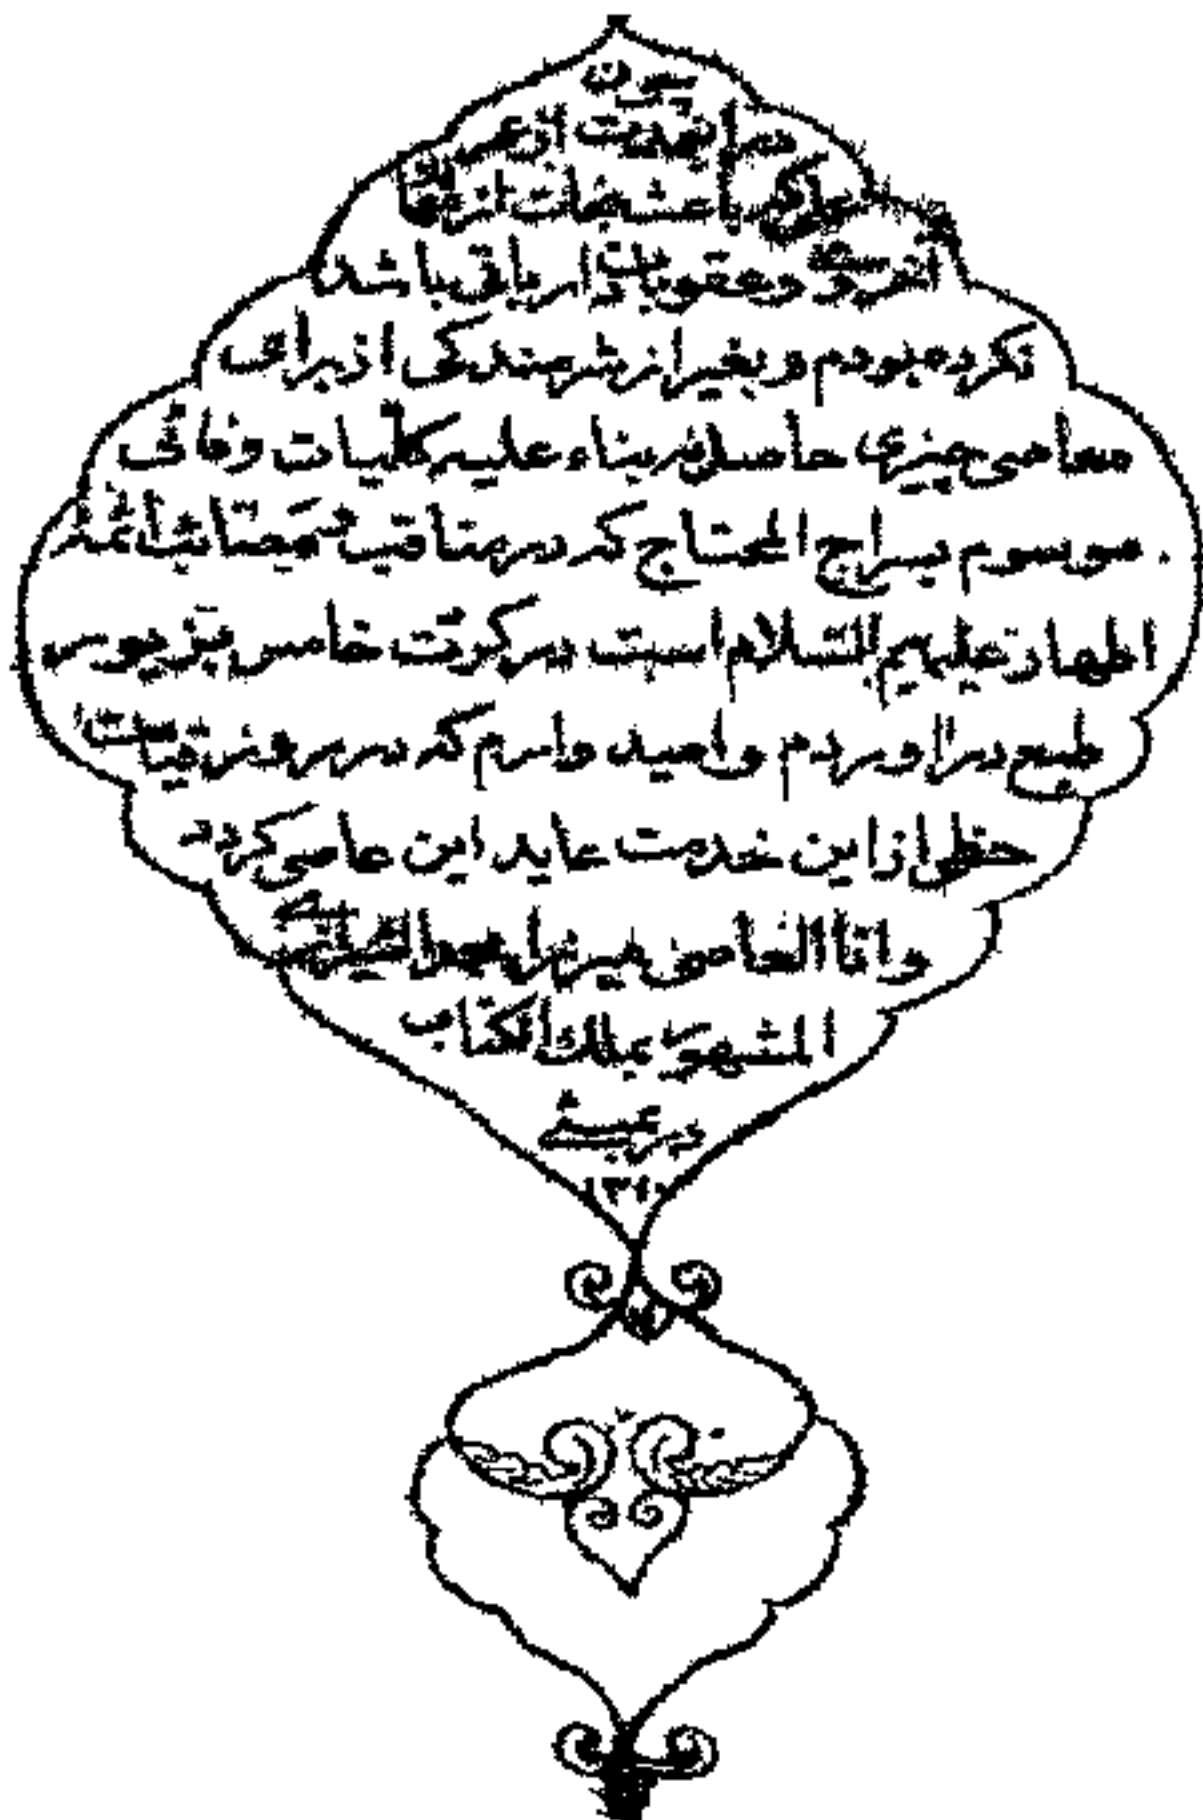 چون
در این مدت از عمر
عملی که باعث نجات از
اخروی و عقوبات دار باقی باشد
نکرده بودم و بغیر از شرمندگی از برای
معاصی چیزی حاصل نه بناء علیه کلیات وفائی
موسوم بسراج المحتاج که در مناقب و مصائب ائمهٔ
اطهار علیهم السلام است در کرت خامس بزیور
طبع در اوردم و امید وارم که در روز قیامت
حظی از این خدمت عاید این عاصی کردد
و انا العاصی میرزا محمد الشیرازی
المشهور بملك الکتاب
در بمبئی